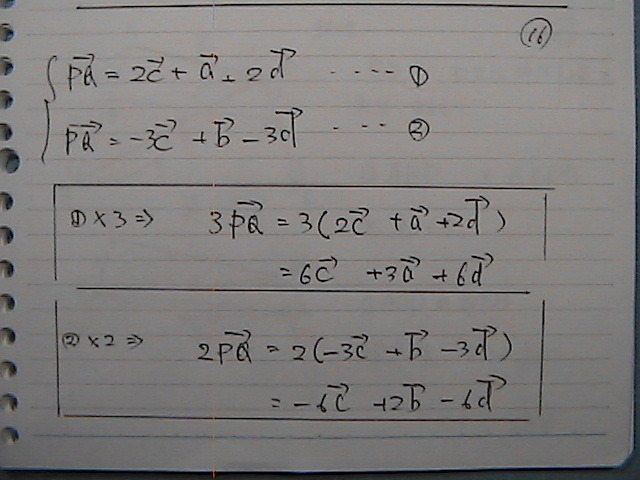 ⑯
PQ⃗ = 2c⃗ + a⃗ + 2d⃗ ····· ①
PQ⃗ = -3c⃗ + b⃗ - 3d⃗ ··· ②
① × 3 ⇒ 3PQ⃗ = 3(2c⃗ + a⃗ + 2d⃗)
= 6c⃗ + 3a⃗ + 6d⃗
② × 2 ⇒ 2PQ⃗ = 2(-3c⃗ + b⃗ - 3d⃗)
= -6c⃗ + 2b⃗ - 6d⃗